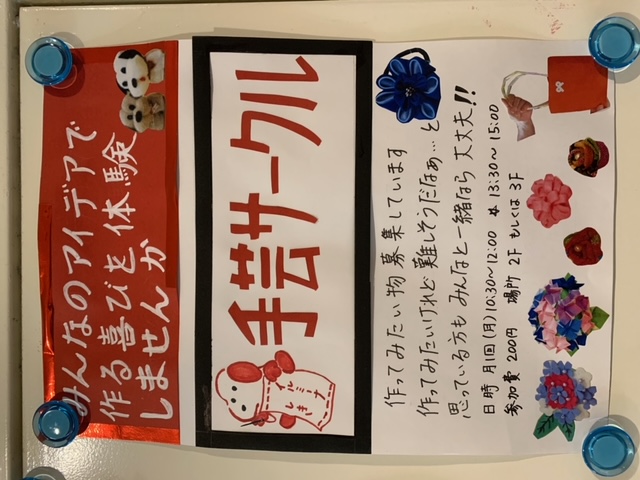 みんなのアイデアで
作る喜びを体験
しませんか
手芸サークル
イルミーナ
しき
作ってみたい物募集しています
作ってみたいけれど難しそうだなぁ…と
思っている方もみんなと一緒なら大丈夫!!
日時 月1回(月)10:30~12:00 13:30~15:00
参加費 200円 場所 2F もしくは 3F